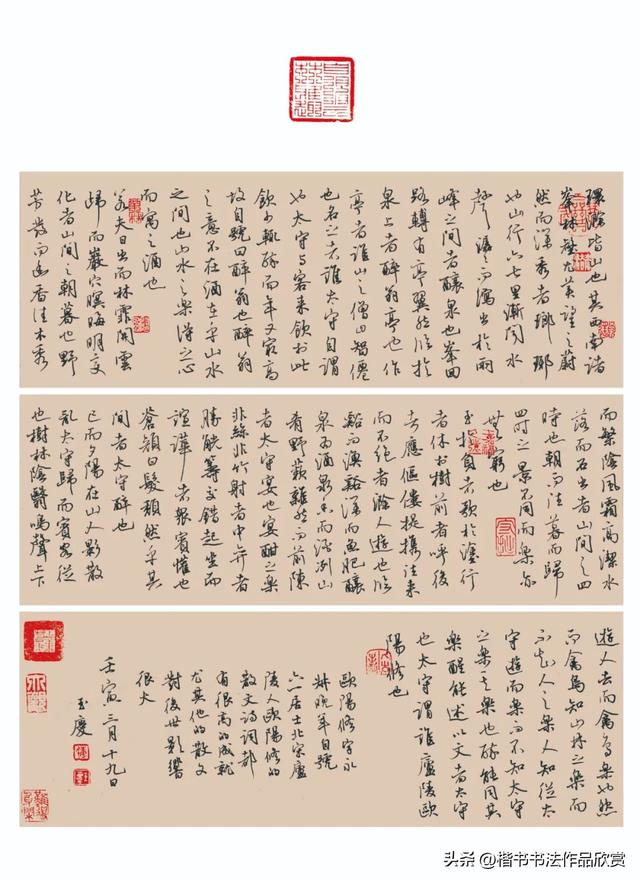 環滁皆山也其西南諸
峯林壑尤美望之蔚
然而深秀者瑯琊
也山行六七里漸聞水
聲潺潺而瀉出於兩
峰之間者釀泉也峯回
路轉有亭翼然臨於
泉上者醉翁亭也作
亭者誰山之僧曰智僊
也名之者誰太守自謂
也太守与客來飲於此
飲少輒醉而年又最高
故自號曰醉翁也醉翁
之意不在酒在乎山水
之間也山水之樂得之心
而寓之酒也
若夫日出而林霏開雲
歸而巖穴暝晦明變
化者山間之朝暮也野
芳發而幽香佳木秀
而繁陰風霜高潔水
落而石出者山間之四
時也朝而往暮而歸
四时之景不同而樂亦
無窮也
至於負者歌於塗行
者休於樹前者呼後
者應傴僂提攜往來
而不绝者滁人遊也臨
谿而漁谿深而魚肥釀
泉为酒泉香而酒洌山
肴野蔌雜然而前陳
者太守宴也宴酣之樂
非絲非竹射者中弈者
勝觥籌交錯起坐而
諠譁者衆賓懽也
蒼顏白髮頹然乎其
間者太守醉也
已而夕陽在山人影散
亂太守歸而賓客從
也樹林陰翳鳴聲上下
遊人去而禽鳥樂也然
而禽鳥知山林之樂而
不知人之樂人知從太
守遊而樂而不知太守
之樂其樂也醉能同其
樂醒能述以文者太守
也太守謂誰廬陵歐
陽修也
歐陽修字永
叔晚年自號
六一居士北宋廬
陵人歐陽修的
散文詩詞都
有很高的成就
尤其他的散文
對後世影響
很大
壬寅三月十九日
玉慶
头条 @楷书书法作品欣赏